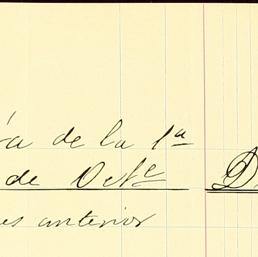 de la 1ª
de Octe D
anterior